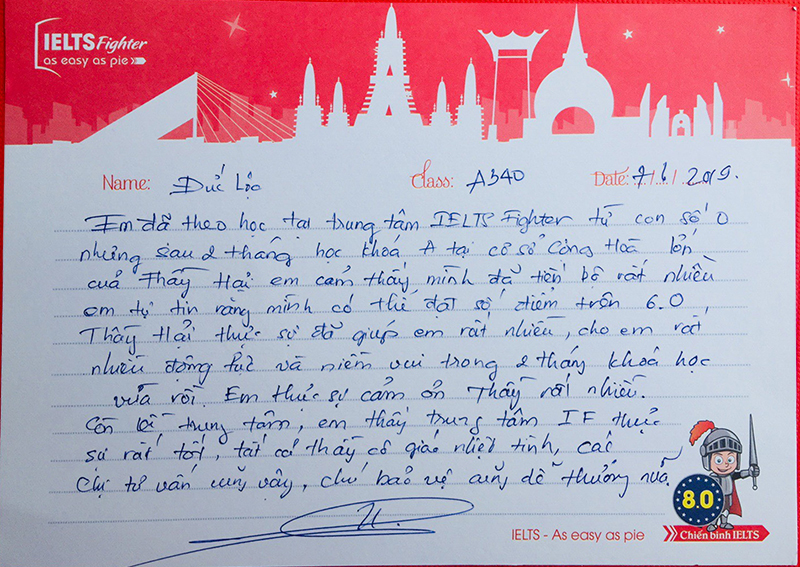 IELTS Fighter
as easy as pie
Name: Đức Lộc Class: A340 Date: 7/6/2019.
Em đã theo học tại trung tâm IELTS Fighter từ con số 0
nhưng sau 2 tháng học khoá A tại cơ sở Cộng Hoà lớp
của Thầy Hải em cảm thấy mình đã tiến bộ rất nhiều
em tự tin rằng mình có thể đạt số điểm trên 6.0
Thầy Hải thực sự đã giúp em rất nhiều, cho em rất
nhiều động lực và niềm vui trong 2 tháng khoá học
vừa rồi. Em thực sự cảm ơn Thầy rất nhiều.
Còn về trung tâm, em thấy trung tâm IF thực
sự rất tốt, tất cả thầy cô giáo nhiệt tình, các
chị tư vấn cũng vậy, chú bảo vệ cũng dễ thương nữa
8.0
IELTS - As easy as pie Chiến binh IELTS